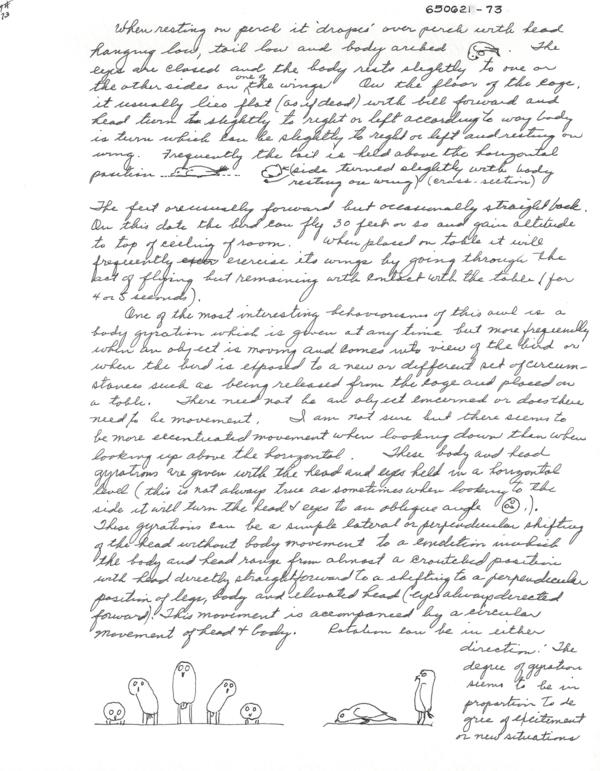 650621-73
73
When resting on perch it 'drapes' over perch with head
hanging low, tail low and body arched. The
eyes are closed and the body rests slightly to one or
the other sides on one of the wings. On the floor of the cage,
it usually lies flat (as if dead) with bill forward and
head turn slightly to right or left according to way body
is turn which can be slightly to right or left and resting on
wing. Frequently the tail is held above the horizontal
position (side turned slightly with body
resting on wing) (cross-section)
The feet are usually forward but occasionally straight back.
On this date the bird can fly 30 feet or so and gain altitude
to top of ceiling of room. When placed on table it will
frequently exercise its wings by going through the
act of flying but remaining with contact with the table (for
4 or 5 seconds).
One of the most interesting behaviourisms of this owl is a
body gyration which is given at any time but more frequently
when an object is moving and comes into view of the bird or
when the bird is exposed to a new or different set of circum-
stances such as being released from the cage and placed on
a table. There need not be an object concerned or does there
need to be movement. I am not sure but there seems to
be more accentuated movement when looking down then when
looking up above the horizontal. These body and head
gyrations are given with the head and eyes held in a horizontal
level (this is not always true as sometimes when looking to the
side it will turn the head & eyes to an oblique angle).
These gyrations can be a simple lateral or perpendicular shifting
of the head without body movement to a condition in which
the body and head range from almost a crouched position
with head directly straight forward to a shifting to a perpendicular
position of legs, body and elevated head (eyes always directed
forward). This movement is accompanied by a circular
movement of head & body. Rotation can be in either
direction. The
degree of gyration
seems to be in
proportion to de
gree of excitement
or new situations